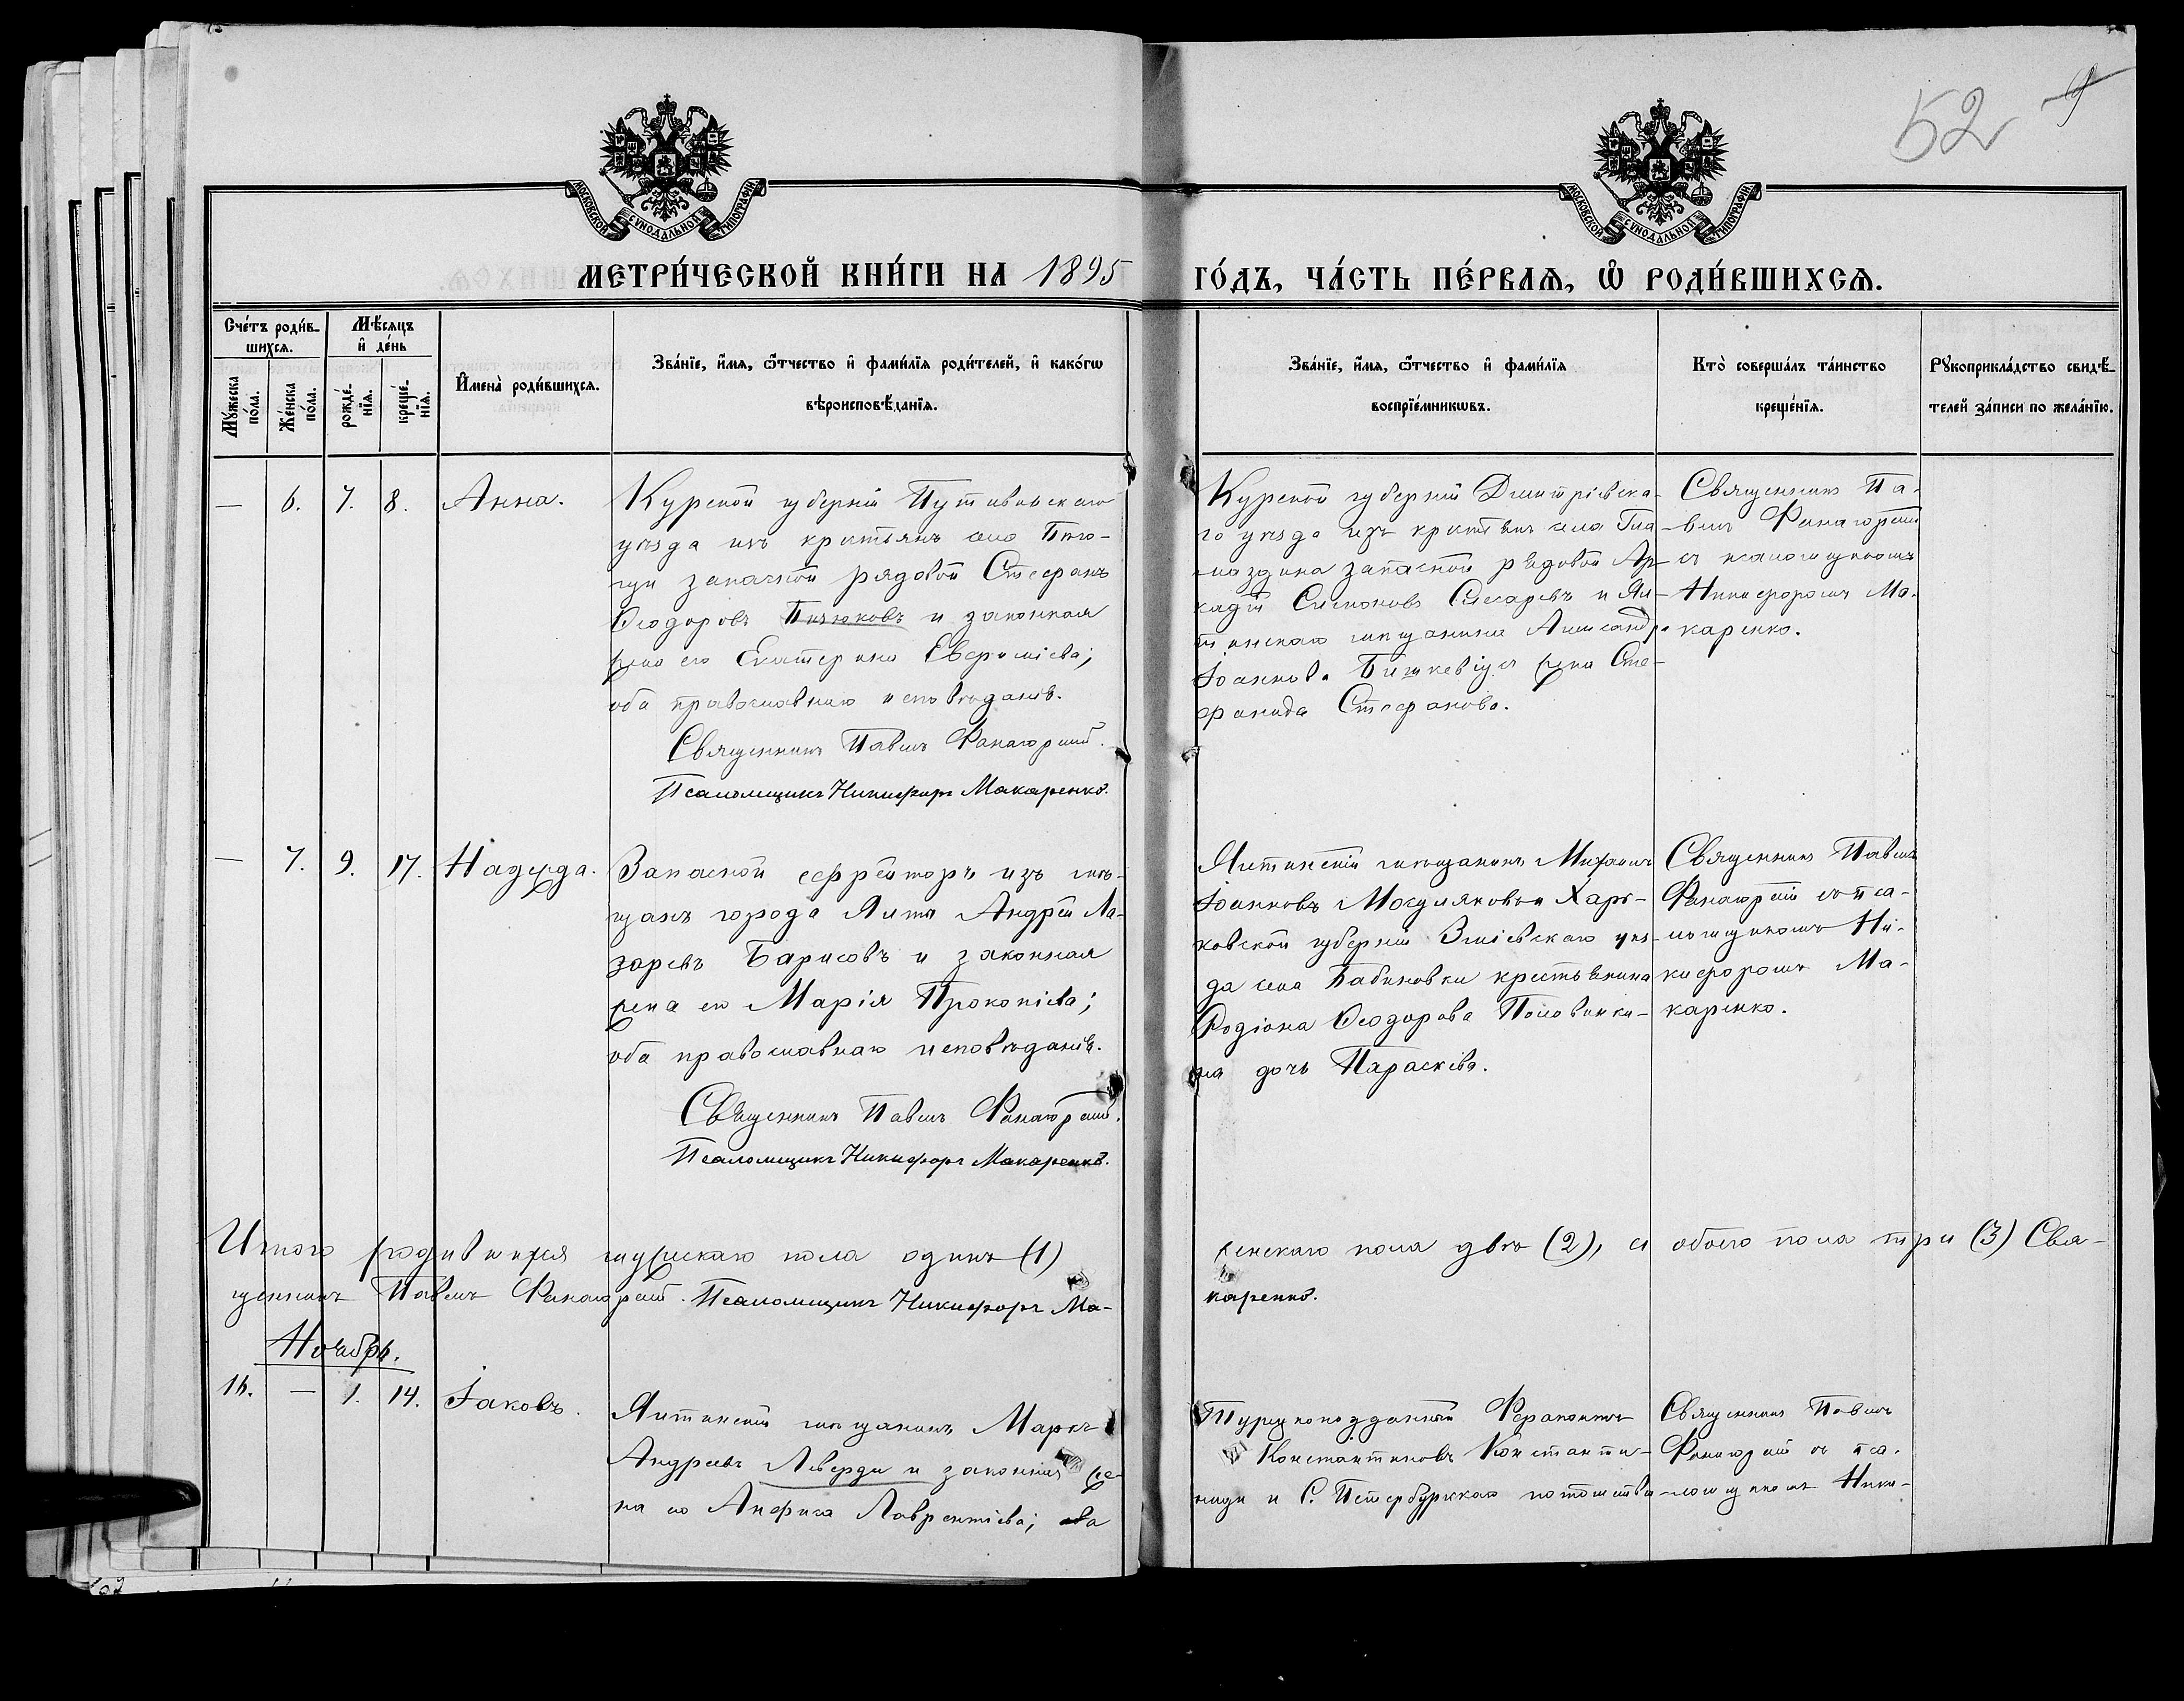 52
МОСКОВСКОЙ СУНОДАЛЬНОЙ ТИПОГРАФІИ
МОСКОВСКОЙ СУНОДАЛЬНОЙ ТИПОГРАФІИ
МЕТРИ́ЧЕСКОЙ КНИ́ГИ НА 1895 ГО́ДЪ, ЧА́СТЬ ПЕ́РВАѦ, Ѡ҆ РОДИ́ВШИХСѦ.
Сче́тъ роди́в-
шихсѧ.
Мѣ́сѧцъ
и҆ де́нь
Мꙋ́жеска
по́ла.
Же́нска
по́ла.
рожде́-
нїѧ.
креще́-
нїѧ.
И҆мена̀ роди́вшихсѧ.
Зва́нїе, и҆́мѧ, ѻ҆́тчество и҆ фами́лїѧ роди́телей, и҆ како́гѡ
вѣроисповѣ́данїѧ.
Зва́нїе, и҆́мѧ, ѻ҆́тчество и҆ фами́лїѧ
воспрїе́мникѡвъ.
Кто̀ соверша́лъ та́инство
креще́нїѧ.
Рꙋкоприкла́дство свидѣ́-
телей за́писи по жела́нїю.
— 6. 7. 8. Анна.
Курской губерніи Путивльскаго
уѣзда изъ крестьянъ села
запасной рядовой Стефанъ
Ѳеодоровъ Бизюковъ и законная
жена его Екатерина Евфиміева;
оба православнаго исповѣданія.
Священникъ Павелъ Фанагорскій.
Псаломщикъ Никифоръ Макаренко.
Курской губерніи Дмитріевска-
го уѣзда изъ крестьянъ села Гла-
запасной рядовой Ар-
кадій Симоновъ Слесаревъ и Ял-
тинскаго мѣщанина Александра
Іоаннова жена Сте-
фанида Стефанова.
Священникъ Па-
велъ Фанагорскій
съ псаломщикомъ
Никифоромъ Ма-
каренко.
— 7. 9. 17. Надежда.
Запасной ефрейторъ изъ мѣ-
щанъ города Ялты Андрей Ла-
заревъ Барисовъ и законная
жена его Марія Прокопіева;
оба православнаго исповѣданія.
Священникъ Павелъ Фанагорскій.
Псаломщикъ Никифоръ Макаренко.
Ялтинскій мѣщанинъ Михаилъ
Іоанновъ Могуляковъ и Харь-
ковской губерніи Зміевскаго уѣз-
да села Бабиновки крестьянина
Родіона Ѳеодорова Половинки-
на дочь Параскева.
Священникъ Павелъ
Фанагорскій съ пса-
ломщикомъ Ни-
кифоромъ Ма-
каренко.
Итого родившихся мужескаго пола одинъ (1) женскаго пола двѣ (2), а обоего пола три (3) Свя-
щенникъ Павелъ Фанагорскій. Псаломщикъ Никифоръ Макаренко.
Ноябрь.
16. — 1. 14. Іаковъ.
Ялтинскій мѣщанинъ Маркъ
Андреевъ Лаверди и законная же-
на его Анфиса Лаврентіева; оба
Турецкоподданный Ферапонтъ
Константиновъ Константи-
ниди и С. Петербургскаго потомств-
Священникъ Павелъ
Фанагорскій съ пса-
ломщикомъ Ники-